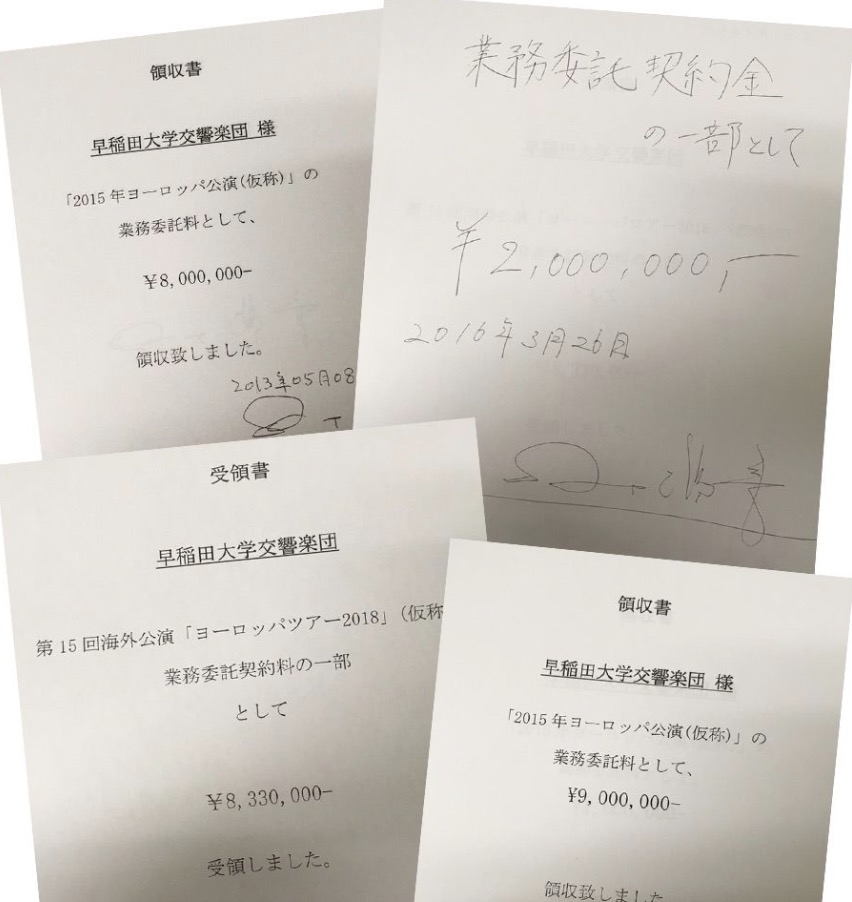 領収書
早稲田大学交響楽団 様
「2015 年ヨーロッパ公演(仮称)」の
業務委託料として、
¥8,000,000-
領収致しました。
2013年05月08
業務委託契約金
の一部として
¥2,000,000,-
2016年3月26日
受領書
早稲田大学交響楽団
第 15 回海外公演「ヨーロッパツアー2018」(仮称
業務委託契約料の一部
として
¥8,330,000-
受領しました。
領収書
早稲田大学交響楽団 様
「2015 年ヨーロッパ公演(仮称)」の
業務委託料として、
¥9,000,000-
領収致しました